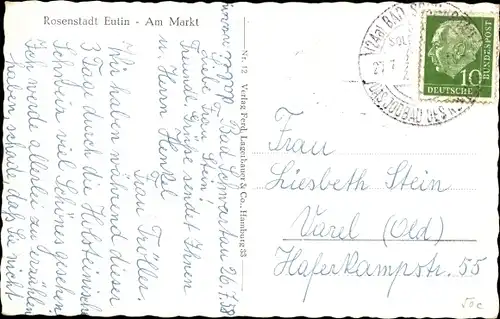 Rosenstadt Eutin - Am Markt
Bad Schwartau 26.7.58
Liebe Frau Stein!
Freundl. Grüße sendet Ihnen
u. Herrn Henkel
Frau Tröller.
Wir haben während dieser
3 Tage durch die Holsteinische
Schweiz viel Schönes gesehen.
Ich werde allerlei zu erzählen
haben, schade, daß Sie nicht
dabei waren
Nr. 12 Verlag Ferd. Lagerbauer & Co., Hamburg 33
BAD
DEUTSCHE
BUNDESPOST
10
Frau
Liesbeth Stein
Varel (Old)
Haferkampstr. 55